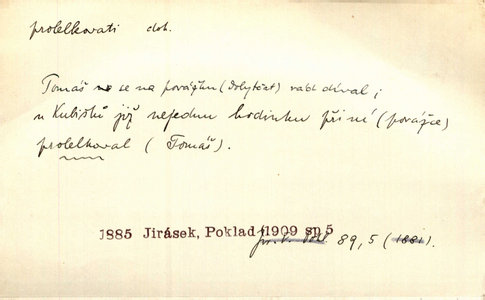 prolelkovati dok.
Tomáš se na považku (dobytčat) rád díval i
u Kubištů již nejednu hodinku při ní (považce)
prolelkoval (Tomáš).
1885 Jirásek, Poklad (1909 sp 5
89, 5 (1881).